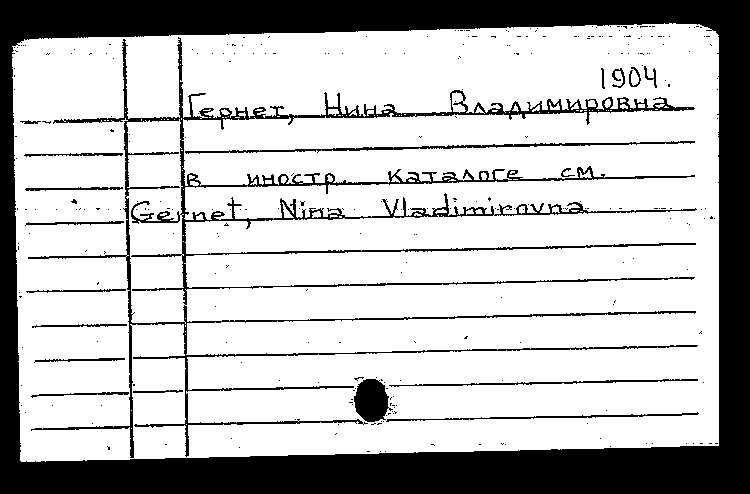 1904.
Гернет, Нина Владимировна
в иностр. каталоге см.
Gernet, Nina Vladimirovna